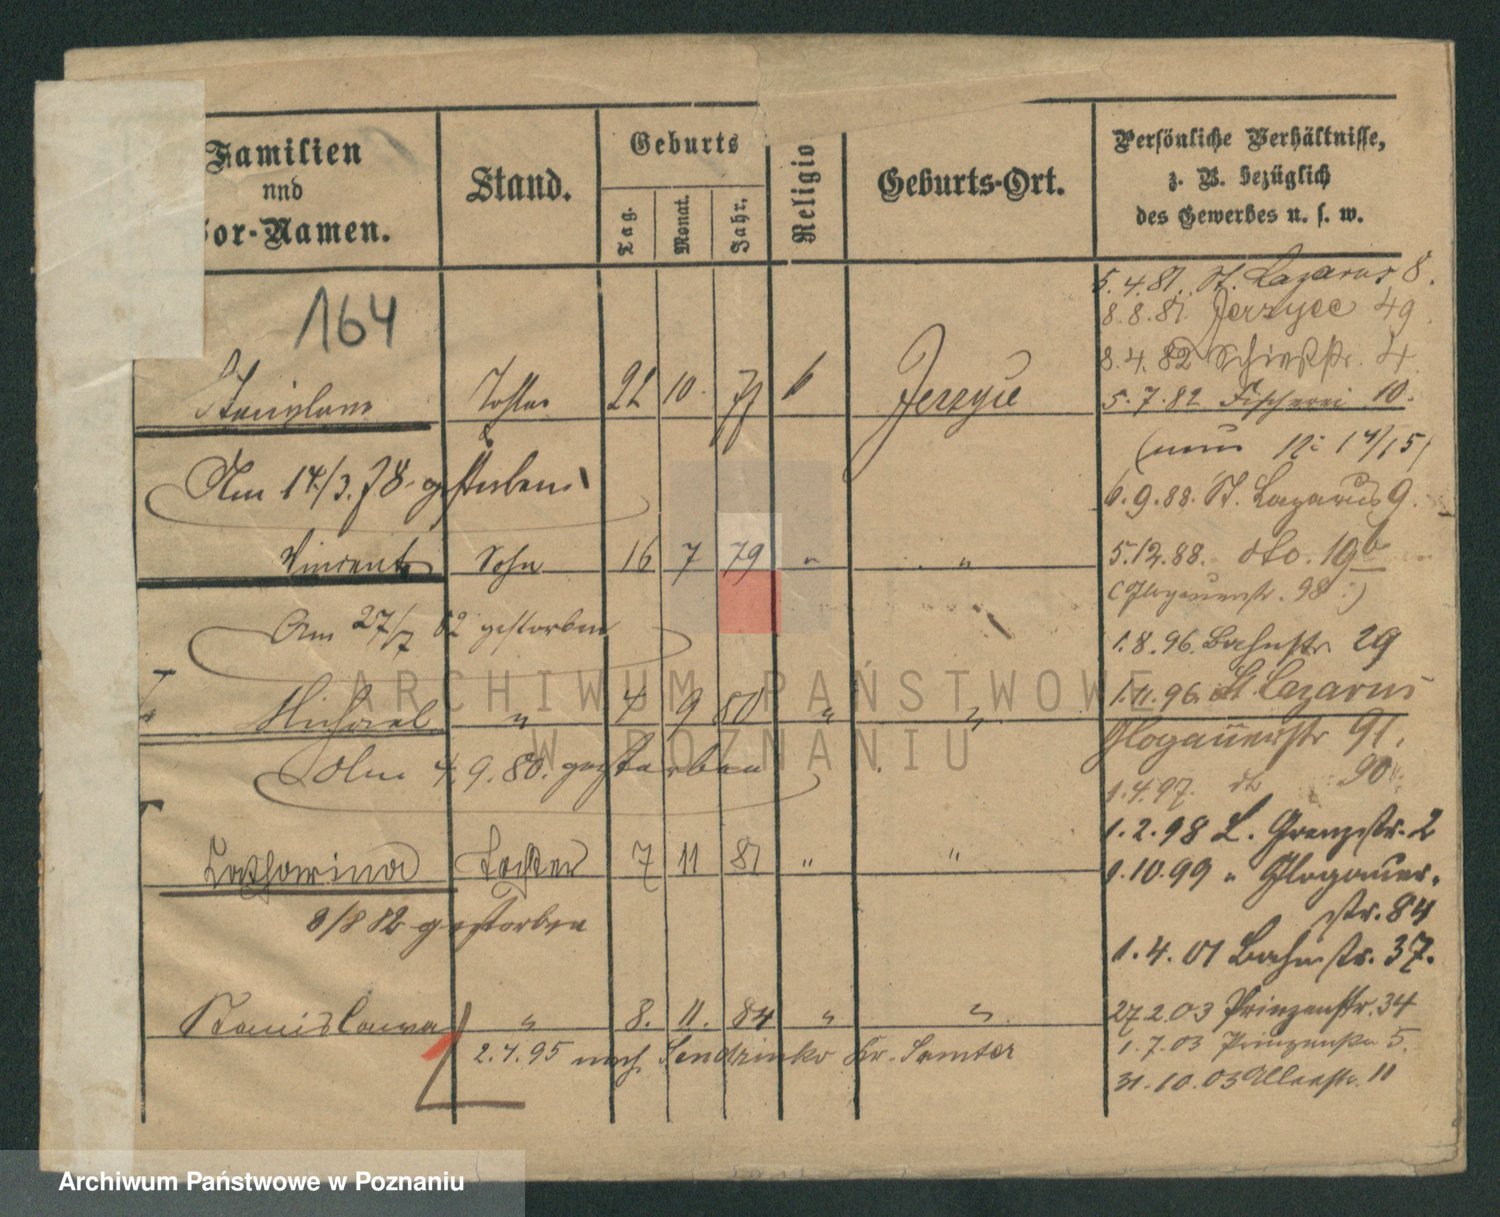 Familien
und
Vor-Namen.
Stand.
Geburts
Tag.
Monat.
Jahr.
Religio
Geburts-Ort.
Persönliche Verhältnisse,
z. B. bezüglich
des Gewerbes u. s. w.
164
5.4.81. St. Lazarus 8.
8.8.81. Jerzyce 49.
8.4.82 Schießstr. 4.
5.7.82 Fischerei 10.
22 10. 77 Jerzyce
Am 14/3.78. gestorben
6.9.88. St. Lazarus 9.
Vincent Sohn 16 7 79 " "
5.12.88. dto. 19b
(Glogauerstr. 98:)
Am 27/7 82 gestorben
1.8.96. Bahnstr. 29
1.11.96. St. Lazarus
Michael " 4 9 80 " "
Glogauerstr 91.
Am 4.9.80. gestorben
1.4.97. do 90
1.2.98 L. Grenzstr. 2
Catharina Tochter 7 11 81 " "
1.10.99 " Glogauer-
str. 84
8/8 82 gestorben
1.4.01 Bahnstr. 37.
Stanislawa " 8. 11. 84 " "
27.2.03 Prinzenstr. 34
2.4.95 nach Sendzinko Kr. Samter
1.7.03 Prinzenstr 5.
31.10.03 Alleestr. 11
ARCHIWUM PAŃSTWOWE
W POZNANIU
Archiwum Państwowe w Poznaniu